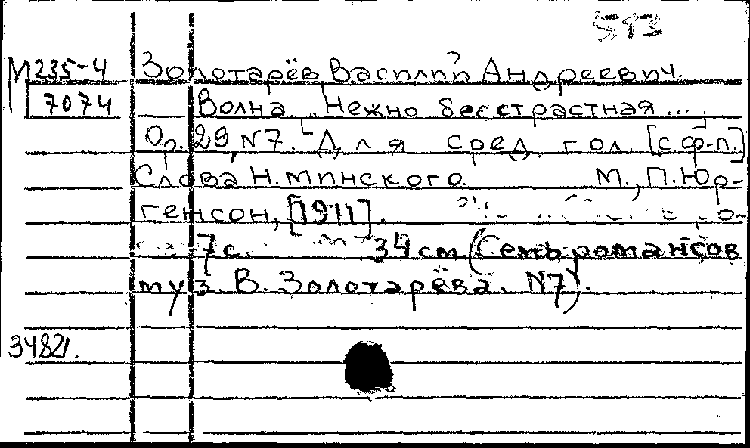 513
М 235-4 Золотарёв Василий Андреевич.
7074 Волна „Нежно бесстрастная...
Ор. 29, N7. Для сред. гол. [с ф-п.]
Слова Н. Минского. М., П. Юр-
генсон, [1911].
7 с. 34 см (Семь романсов
муз. В. Золотарёва. N7).
3482.